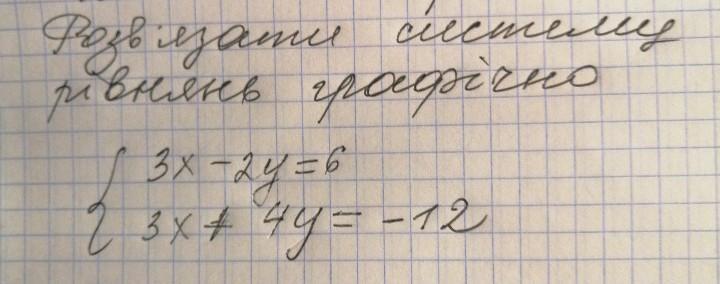 Розв'язати систему
рівнянь графічно
3x - 2y = 6
3x + 4y = -12